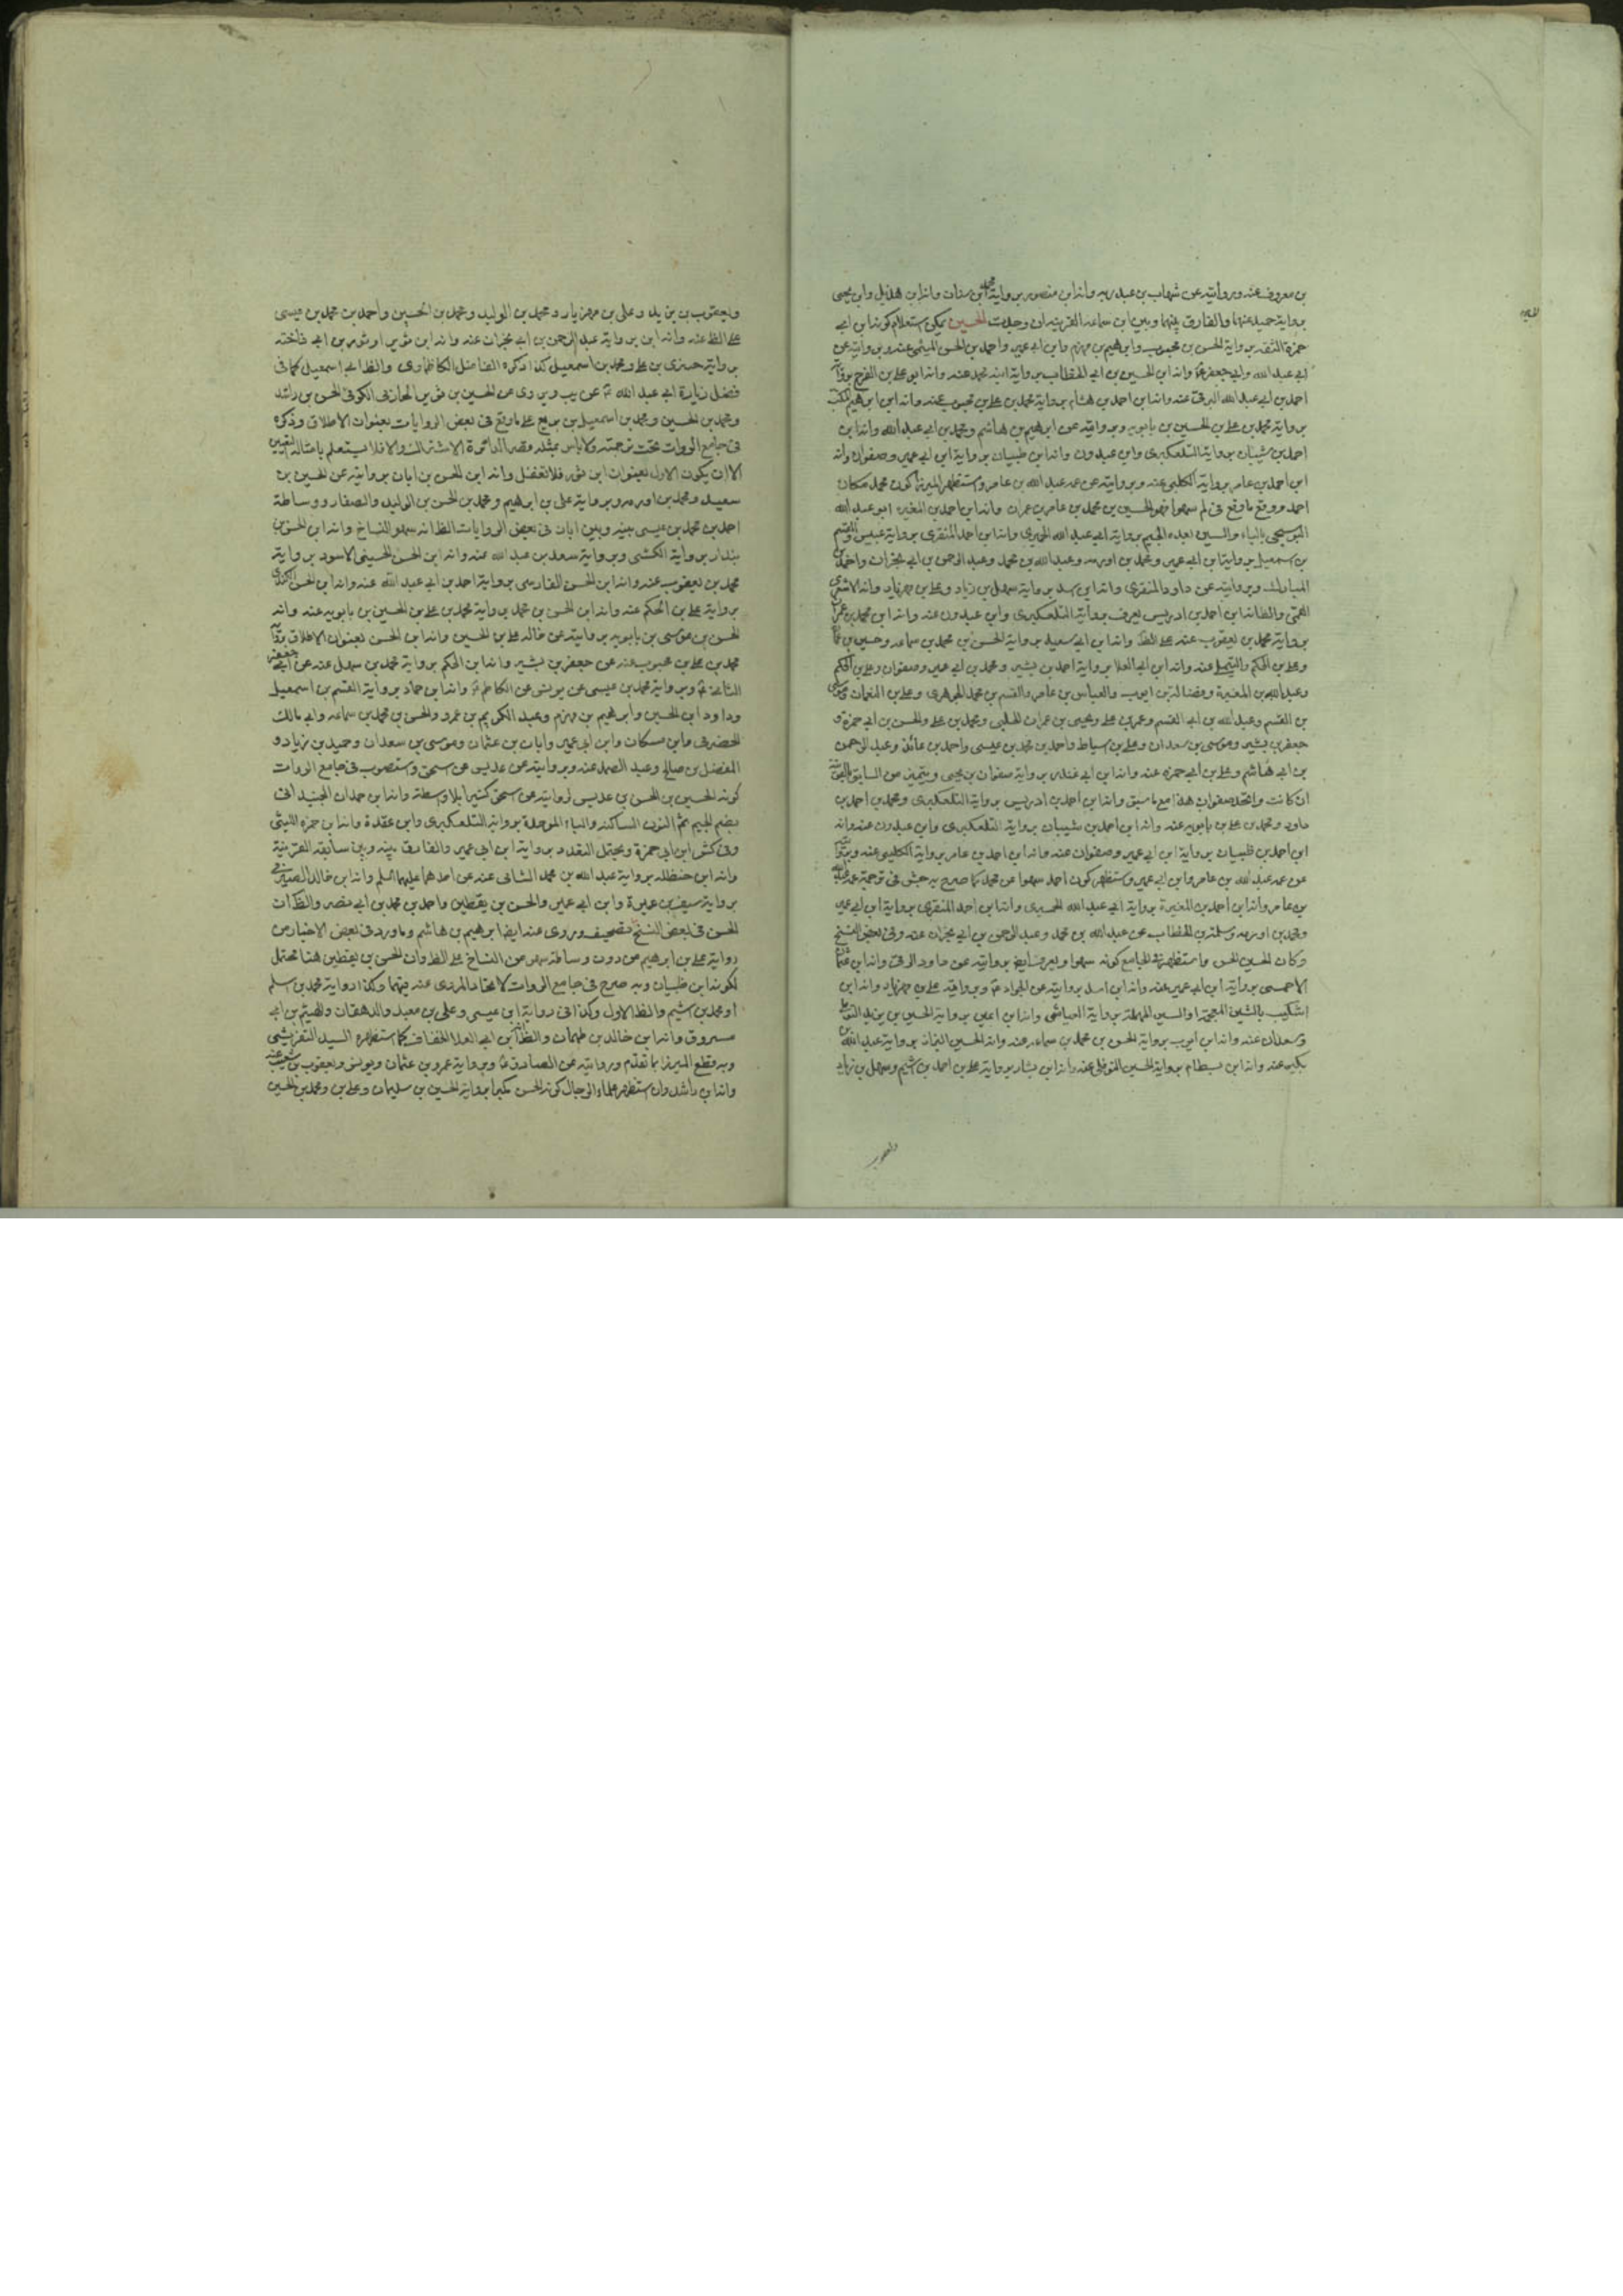 بن معروف عنه وبروايته عن شهاب بن عبد ربه وانه ابن منصور برواية محمد بن سنان وانه ابن هذيل وابن يحيى
برواية حميد عنهما والفارق بينهما وبين ابن سماعه القرينه ان وجدت الحسين يمكن استعلام كونه ابن ابي
حمزة الثقه برواية الحسن بن محبوب وابرهيم بن مهزم وابن ابي عمير واحمد بن الحسن الميثمي عنه وبروايته عن
ابي عبد الله وابي جعفر ع وانه ابن الحسين بن ابي الخطاب برواية ابنه محمد عنه وانه ابو علي بن الفرج برواية
احمد بن ابي عبد الله البرقي عنه وانه ابن احمد بن هشام برواية محمد بن علي بن محبوب عنه وانه ابن ابرهيم
برواية محمد بن علي بن الحسين بن بابويه وبروايته عن ابرهيم بن هاشم ومحمد بن ابي عبد الله وانه ابن
احمد بن شيبان برواية التلعكبري وابن عبدون وانه ابن ظبيان برواية ابن ابي عمير وصفوان وانه
ابن احمد بن عامر برواية الكليني عنه وبروايته عن عمه عبد الله بن عامر واستظهر الميرزا كون محمد مكان
احمد ووقع ما وقع في لم سهوا فهو الحسين بن محمد بن عامر بن عمران وانه ابن احمد بن المغيره ابو عبد الله
البوسنجي بالباء والسين بعده الجيم برواية ابي عبد الله الحميري وانه ابن احمد المنقري برواية عبيس والقسم
بن اسمعيل برواية ابن ابي عمير ومحمد بن اورمه وعبد الله بن محمد وعبد الرحمن بن ابي نجران واحمد بن
المبارك وبروايته عن داود المنقري وانه ابن اسد برواية سهل بن زياد وعلي بن مهزيار وانه الاشعري
القمي والظ انه ابن احمد بن ادريس يعرف برواية التلعكبري وابن عبدون عنه وانه ابن محمد بن عمران
برواية محمد بن يعقوب عنه على الظ وانه ابن ابي سعيد برواية الحسن بن محمد بن سماعه وحسين بن
وعلي بن الحكم والتيملي عنه وانه ابن ابي العلا برواية احمد بن بشير ومحمد بن ابي عمير وصفوان وعلي بن الحكم
وعبد الله بن المغيرة وفضالة بن ايوب والعباس بن عامر والقسم بن محمد الجوهري وعلي بن النعمان وموسى
بن القسم وعبد الله بن ابي القسم وعمر بن علي ويحيى بن عمران الحلبي ومحمد بن علي والحسن بن ابي حمزة و
جعفر بن بشير وموسى بن سعدان وعلي بن اسباط واحمد بن محمد بن عيسى واحمد بن عائذ وعبد الرحمن
بن ابي هاشم وعلي بن ابي حمزه عنه وانه ابن ابي غندر برواية صفوان بن يحيى ويتميز من السابق بالقرينة
ان كانت واتحد صفوان هذا مع ما سبق وانه ابن احمد بن ادريس برواية التلعكبري ومحمد بن احمد بن
داود ومحمد بن علي بن بابويه عنه وانه ابن احمد بن شيبان برواية التلعكبري وابن عبدون عنه وانه
ابن احمد بن ظبيان برواية ابن ابي عمير وصفوان عنه وانه ابن احمد بن عامر برواية الكليني عنه وبروايته
عن عمه عبد الله بن عامر وابن ابي عمير واستظهر كون احمد سهوا عن محمد كما صرح به جش في ترجمة عمه عبد الله
بن عامر وانه ابن احمد بن المغيرة برواية ابي عبد الله الحميري وانه ابن احمد المنقري برواية ابن ابي عمير
ومحمد بن اورمه وسلمة بن الخطاب عن عبد الله بن محمد وعبد الرحمن بن ابي نجران عنه وفي بعض النسخ
وكان الحسين الحسن واستظهر في الجامع كونه سهوا ويعرف ايض بروايته عن داود الرقي وانه ابن عثمان
الاحمسي برواية ابن ابي عمير عنه وانه ابن اسد بروايته عن الجواد ع وبرواية علي بن مهزيار وانه ابن
اشكيب بالشين المعجمة او السين المهملة برواية العياشي وانه ابن اعين برواية الحسين بن يزيد
وسعدان عنه وانه ابن ايوب برواية الحسن بن محمد بن سماعه عنه وانه الحسين البزاز برواية عبد الله بن
بكير عنه وانه ابن بسطام برواية الحسين النوفلي عنه وانه ابن بشار برواية علي بن احمد بن اشيم وسهل بن زياد
ويعقوب
ويعقوب بن يزيد وعلي بن مهزيار ومحمد بن الوليد ومحمد بن الحسين واحمد بن محمد بن عيسى
على الظ عنه وانه ابن برواية عبد الرحمن بن ابي نجران عنه وانه ابن ثوير او ثور بن ابي فاخته
برواية خيبري بن علي ومحمد بن اسمعيل كذا ذكره الفاضل الكاظماوي والظ ابي اسمعيل كما في
فضل زيارة ابي عبد الله ع عن يب ويروى عن الحسين بن ثوير الخازني الكوفي الحسن بن راشد
ومحمد بن الحسين ومحمد بن اسمعيل بن بزيع على ما وقع في بعض الروايات بعنوان الاطلاق وذكره
في جامع الرواة تحت ترجمته ولا باس بمثله وقصر الدائرة الاشتراك والا فلا يستعلم بامثاله التعيين
الا ان يكون الاول بعنوان ابن ثور فلا تغفل وانه ابن الحسن بن ابان بروايته عن الحسين بن
سعيد ومحمد بن اورمه وبرواية علي بن ابرهيم ومحمد بن الحسن بن الوليد والصفار ووساطة
احمد بن محمد بن عيسى بينه وبين ابان في بعض الروايات الظ انه سهو النساخ وانه ابن الحسن بن
بندار برواية الكشي وبرواية سعد بن عبد الله عنه وانه ابن الحسن الحسيني الاسود برواية
محمد بن يعقوب عنه وانه ابن الحسن الفارسي برواية احمد بن ابي عبد الله عنه وانه ابن الحسن الكندي
برواية علي بن الحكم عنه وانه ابن الحسن بن محمد برواية محمد بن علي بن الحسين بن بابويه عنه وانه
الحسن بن موسى بن بابويه بروايته عن خاله علي بن الحسين وانه ابن الحسن بعنوان الاطلاق برواية
محمد بن علي بن محبوب عنه عن جعفر بن بشير وانه ابن الحكم برواية محمد بن سهل عنه عن ابي جعفر
الثاني ع وبرواية محمد بن عيسى عن يونس عن الكاظم ع وانه ابن حماد برواية القسم بن اسمعيل
وداود ابن الحسين وابرهيم بن مهزم وعبد الكريم بن عمرو والحسن بن محمد بن سماعه وابي مالك
الحضرمي وابن مسكان وابن ابي عمير وابان بن عثمان وموسى بن سعدان وحميد بن زياد و
المفضل بن صالح وعبد الصمد عنه وبروايته عن عديس عن اسحق واستصوب في جامع الرواة
كونه الحسين بن الحسن بن عديس لروايته عن اسحق كثيرا بلا واسطة وانه ابن حمدان الجنبلاني
بضم الجيم ثم النون الساكنه والباء الموحدة برواية التلعكبري وابن عقدة وانه ابن حمزه الليثي
وفي كش ابن ابي حمزة ويحتمل التعدد برواية ابن ابي عمير والفارق بينه وبين سابقه القرينة
وانه ابن حنظله برواية عبد الله بن محمد الشامي عنه عن احدهما عليهما السلم وانه ابن خالد الصيرفي
برواية سيف بن عميرة وابن ابي عمير والحسن بن يقطين واحمد بن محمد بن ابي نصر والظ ان
الحسن في بعض النسخ تصحيف وروى عنه ايضا ابرهيم بن هاشم وما ورد في بعض الاخبار من
رواية علي بن ابرهيم من دون وساطته سهو من النساخ على الظ وان الحسن بن يقطين هنا محتمل
لكونه ابن ظبيان وبه صرح في جامع الرواة لاتحاد المروي عنه فيهما وكذا رواية محمد بن سلم
او محمد بن اشيم والظ الاول وكذا في رواية ابن عيسى وعلي بن معبد والدهقان والهيثم بن ابي
مسروق وانه ابن خالد بن طهمان والظ انه ابن ابي العلا الخفاف كما استظهره السيد التفريشي
وبه قطع الميرزا بما تقدم وروايته عن الصادق ع وبرواية عمرو بن عثمان ويونس ويعقوب بن شعيب عنه
وانه ابن راشد وان استظهر علماء الرجال كونه الحسن مكبرا برواية الحسين بن سليمان وعلي بن ومحمد بن الحسين